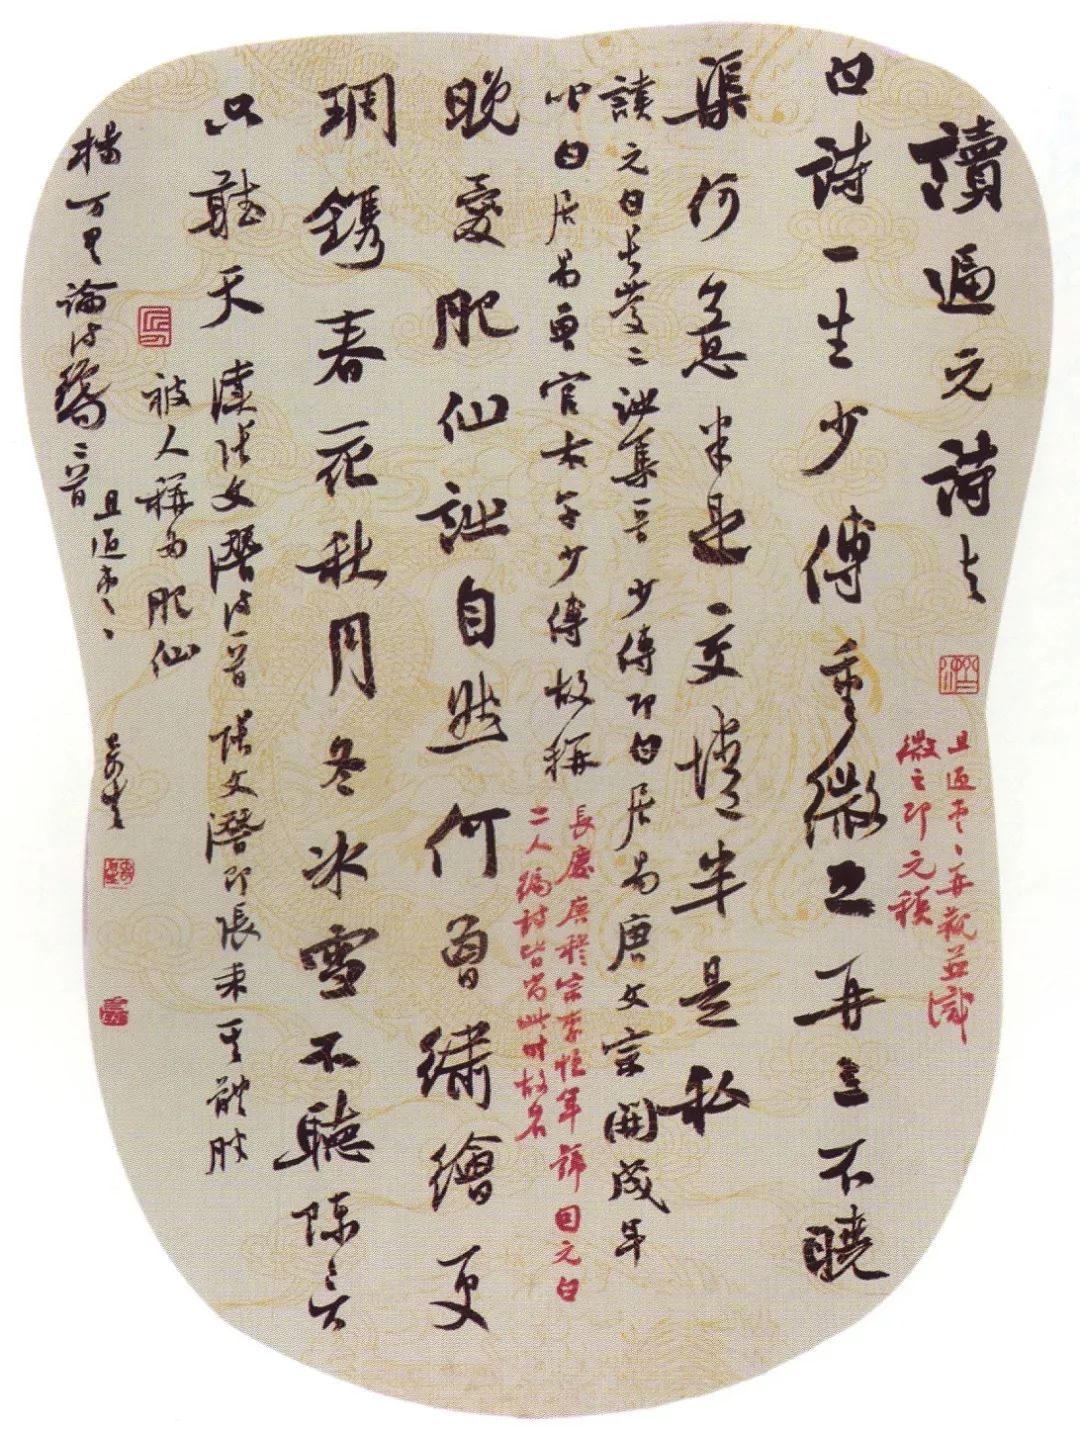 讀遍元詩与
微之即元稹
白詩一生少傅重微之再三不曉
渠何意半是交情半是私
讀元白长慶二詩集一首少傅即白居易唐文宗開成年
白居易官太子少傅故稱
長慶唐穆宗李恒年號因元白
二人編詩皆当此时故名
晚愛肥仙詩自然何曾繡繪更
琱鐫春花秋月冬冰雪不聽陳言
只聽天
讀張文潛诗一首張文潛即張耒其體胖
被人稱为肥仙
楊万里論诗二首